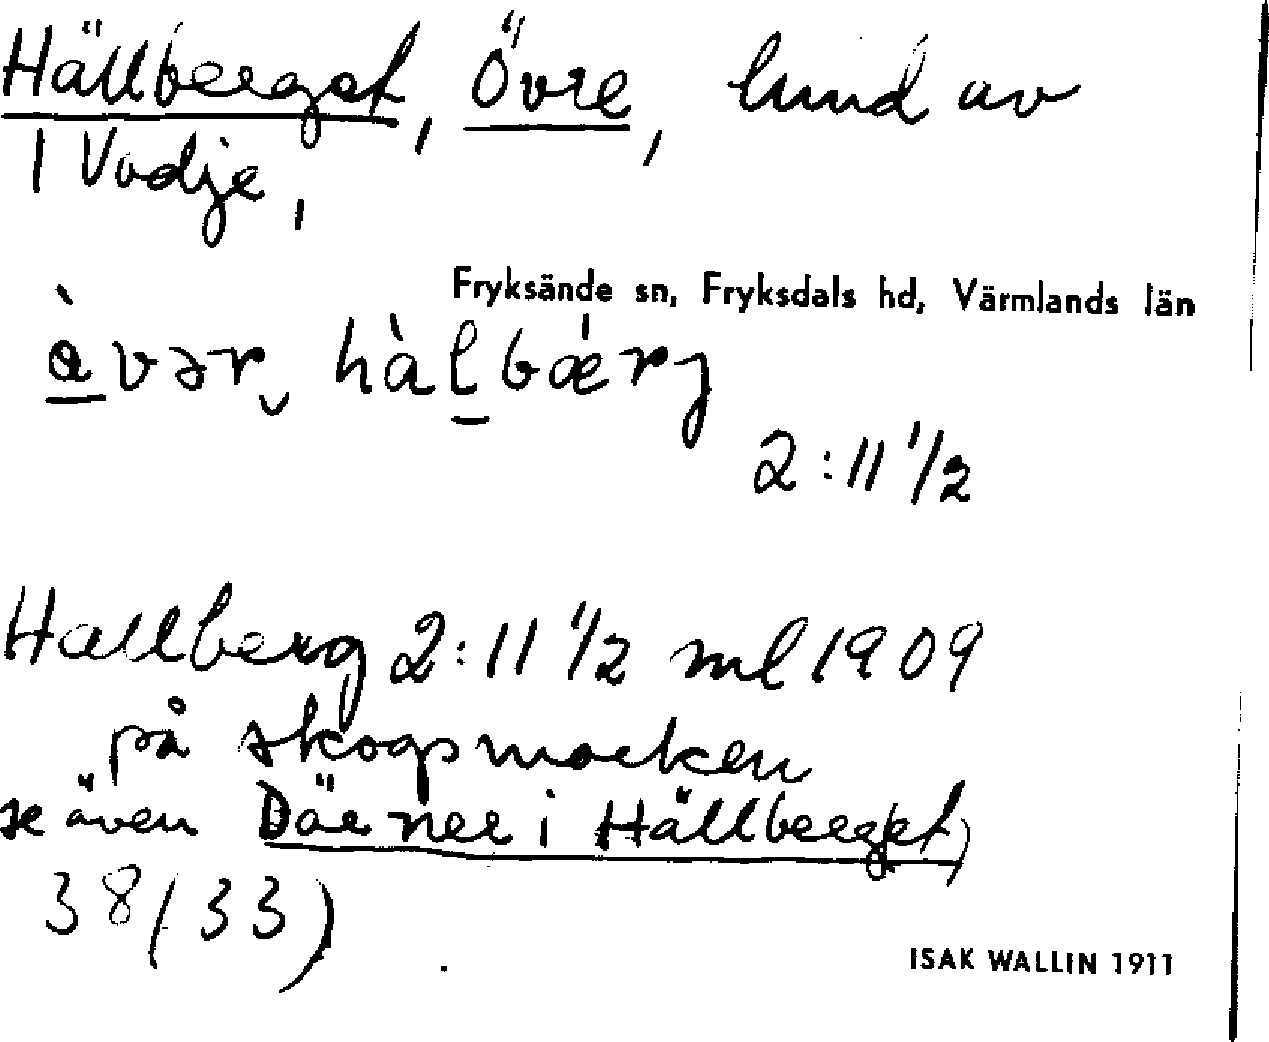 Hällberget, Övre, lund av
1 Vadje,
Fryksände sn, Fryksdals hd, Värmlands län
hàlbǽrj
2:11 1/2
Hallberg 2:11 1/2 ml 1909
på skogsmarken
se även Där ner i Hällberget,
38(33)
ISAK WALLIN 1911